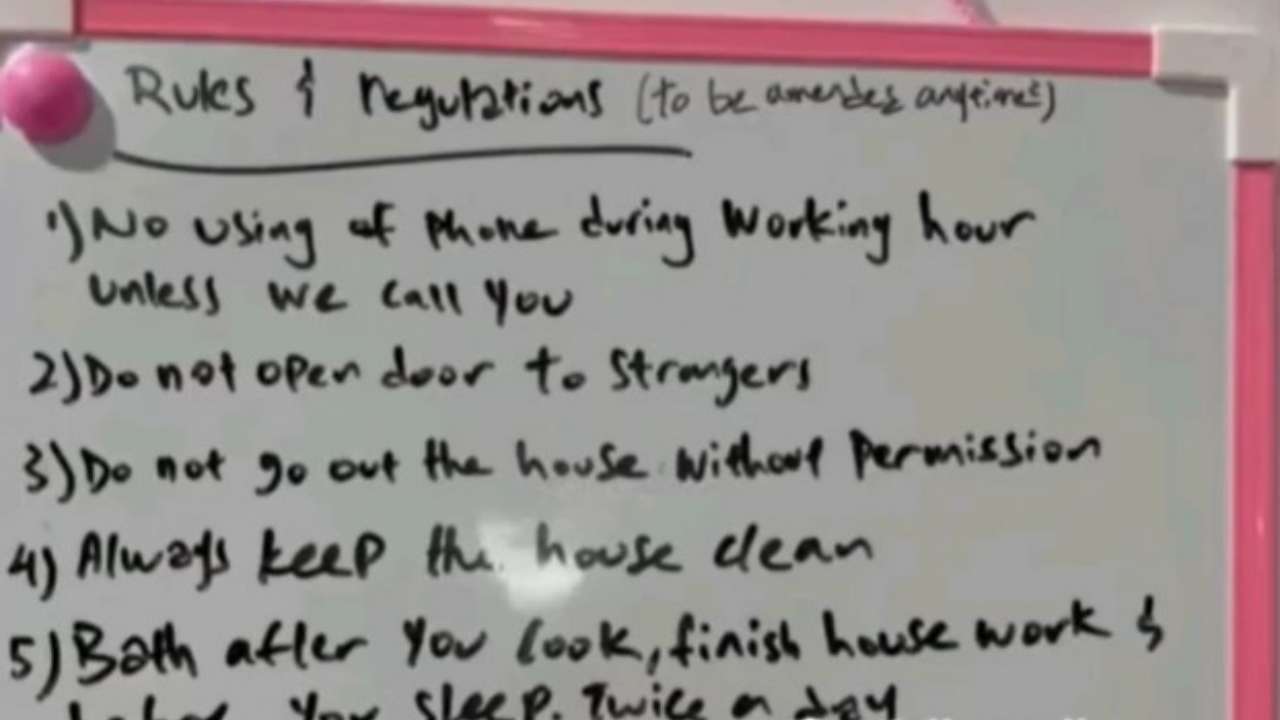 Rules & regulations (to be amended anytimes)
1) No using of phone during working hour
unless we call you
2) Do not open door to strangers
3) Do not go out the house without permission
4) Always keep the house clean
5) Bath after you cook, finish house work &
you sleep. Twice a day